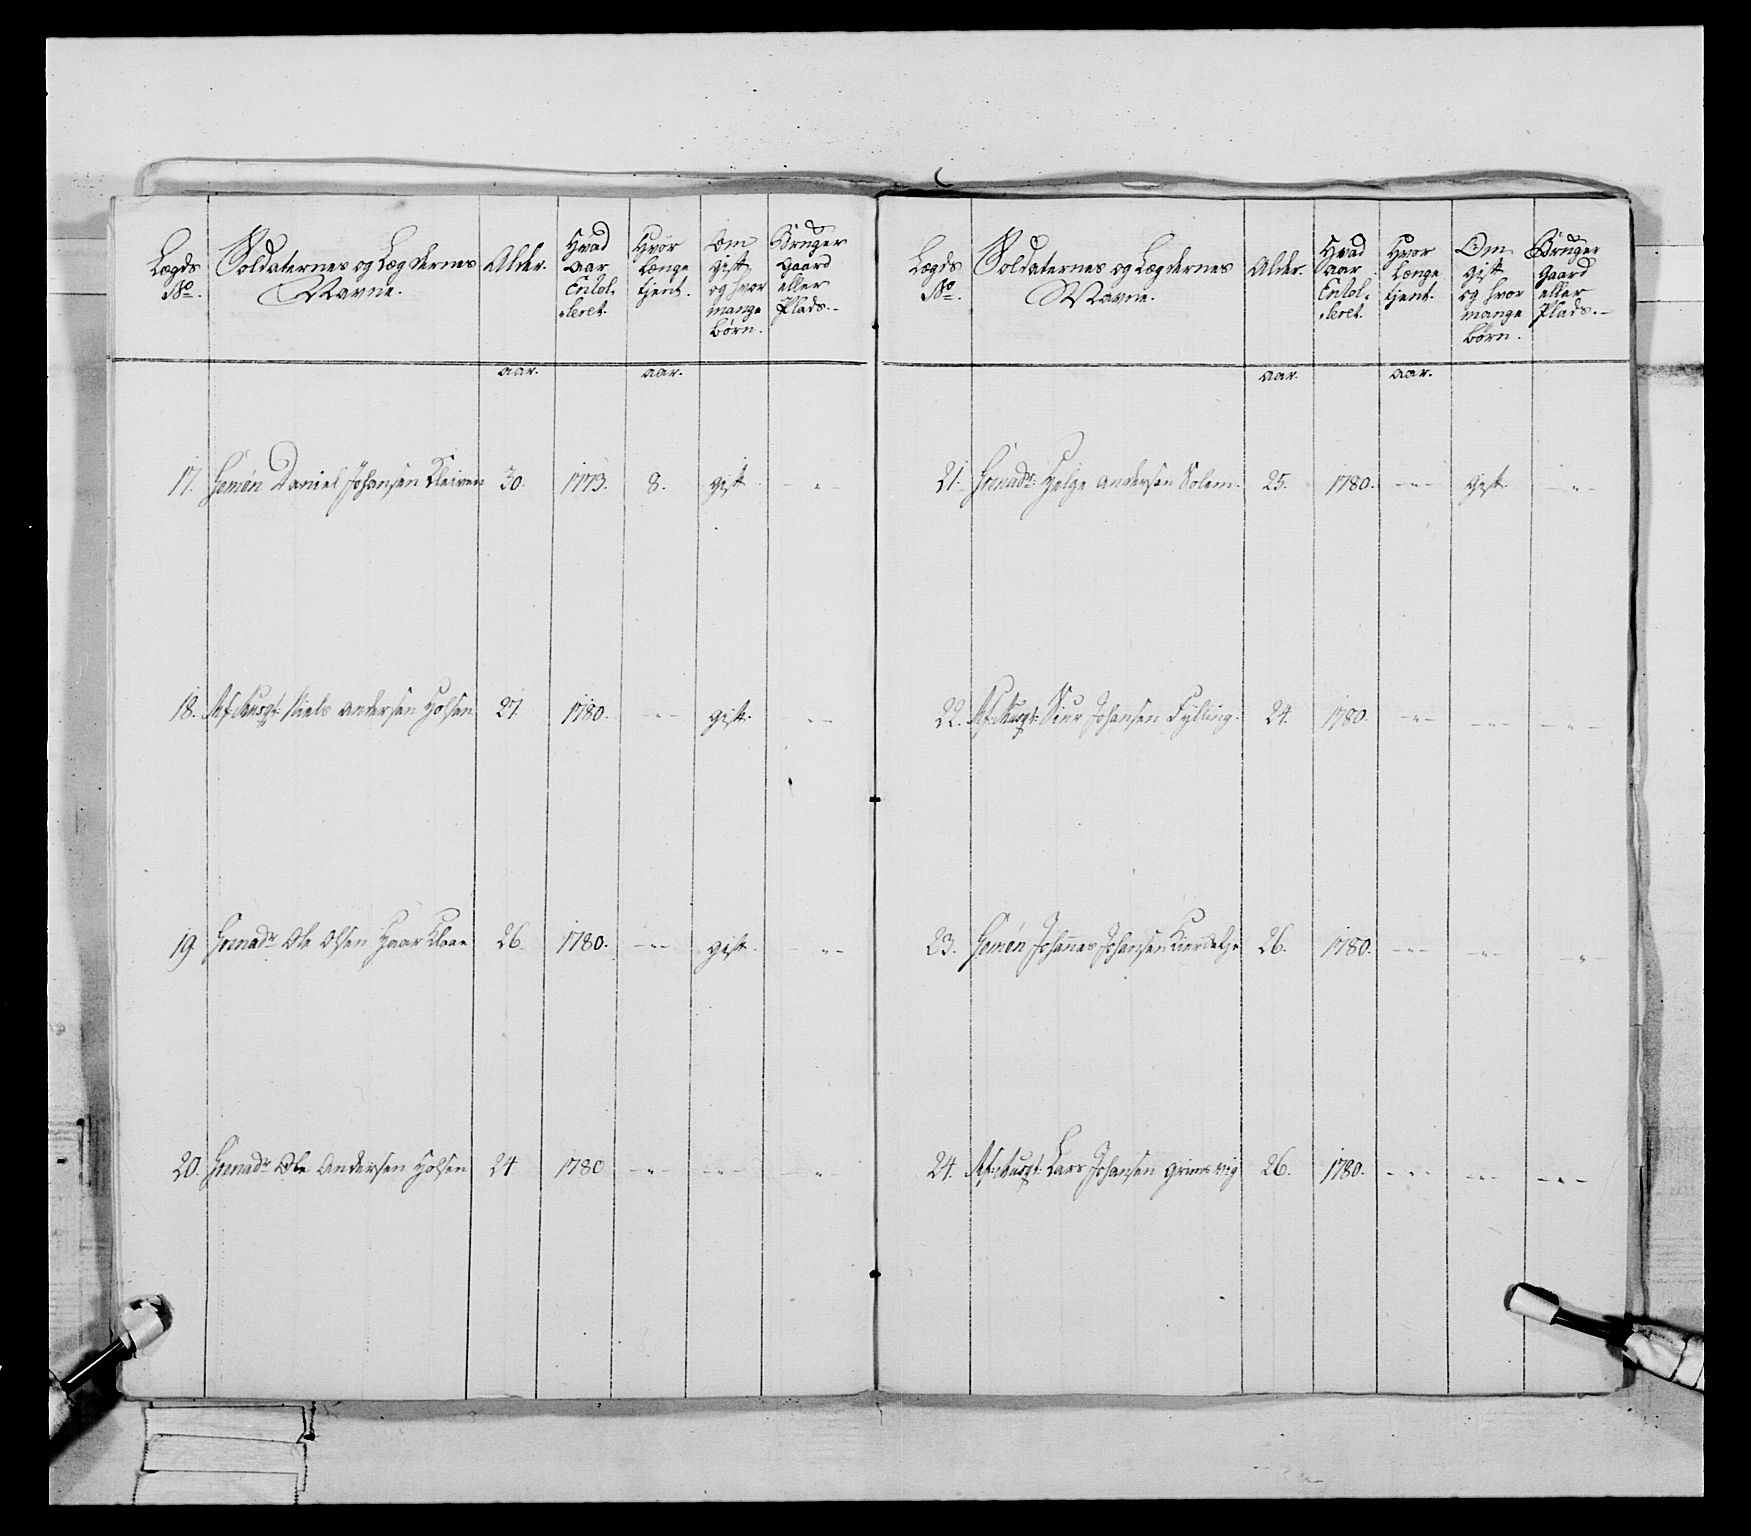 Lægds No. Soldaternes og Lægdernes Navne. Alder. Hvad Aar Enrol-leret. Hvor længe tjent. Om gift og hvor mange børn. Bruger Gaard eller Plads.
aar. aar.
17. Gemen Daniel Johansen Kleiven 30. 1773. 8. gift - " -
18. Af Ausqt: Niels Andersen Holsen 27. 1780. - " - gift. - " -
19. Grenadr Ole Olsen Haar Klaae 26. 1780. - " - gift. - " -
20. Grenadr Ole Andersen Holsen 24 1780 - " - - " - "
Lægds No. Soldaternes og Lægdernes Navne. Alder. Hvad Aar Enrol-leret. Hvor længe tjent. Om gift og hvor mange børn. Bruger Gaard eller Plads.
aar. aar.
21. Grenadr: Helge Andersen Solem. 25. 1780. - " - gift. - " -
22. Af Ausqt: Siur Johansen Fylling. 24. 1780. - " - - " - - " -
23. Gemen Johannes Johansen 26. 1780. - " - - " - - " -
24. Af Ausqt: Lars Johansen Grimsvig 26. 1780. - " - - " - - " -